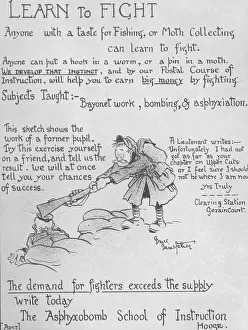 LEARN TO FIGHT
Anyone with a taste for Fishing, or Moth Collecting
can learn to fight.
Anyone can put a hook in a worm, or a pin in a moth.
WE DEVELOP THAT INSTINCT, and by our Postal Course of
Instruction, will help you to earn big money by fighting.
Subjects Taught:—
Bayonet work, bombing, & asphyxiation.
This sketch shows the
work of a former pupil.
Try this exercise yourself
on a friend, and tell us the
result. We will at once
tell you your chances
of success.
A Lieutenant writes:—
Unfortunately I had not
got as far as your
chapter on Upper Cuts
or I feel sure I should
not be where I am now
yrs Truly
Clearing Station
Gezaincourt.
The demand for fighters exceeds the supply
write today
The Asphyxobomb School of Instruction
[Advt]
Hooge.